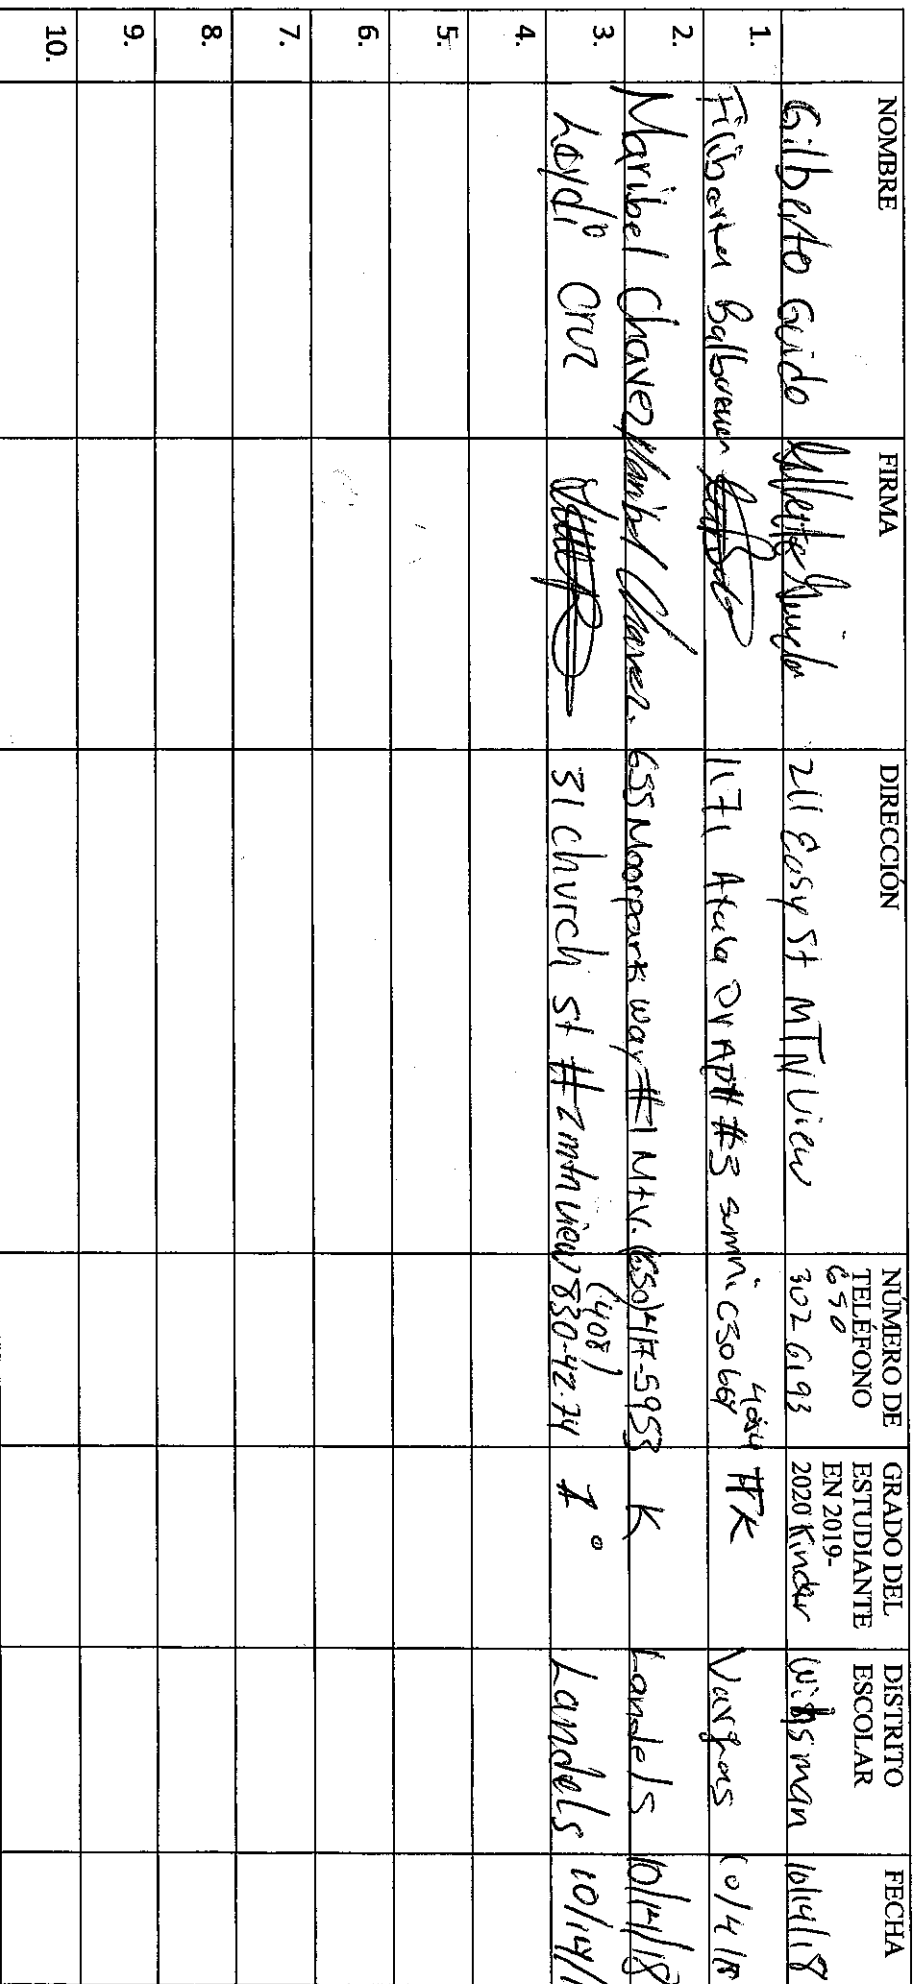 NOMBRE FIRMA DIRECCIÓN NÚMERO DE TELÉFONO GRADO DEL ESTUDIANTE EN 2019-2020 DISTRITO ESCOLAR FECHA
Gilberto Guido 211 Easy St MTN View 650 302 6193 Kinder 10/14/18
1. 1171 #3 TK Vargas
2. Maribel Chavez Maribel Chavez. 655 Moorpark way #1 Mtv. K Landels 10/14/18
3. Loydi cruz 31 church st #2 mtn view (408) 830-42.74 1° Landels 10/14/
4.
5.
6.
7.
8.
9.
10.